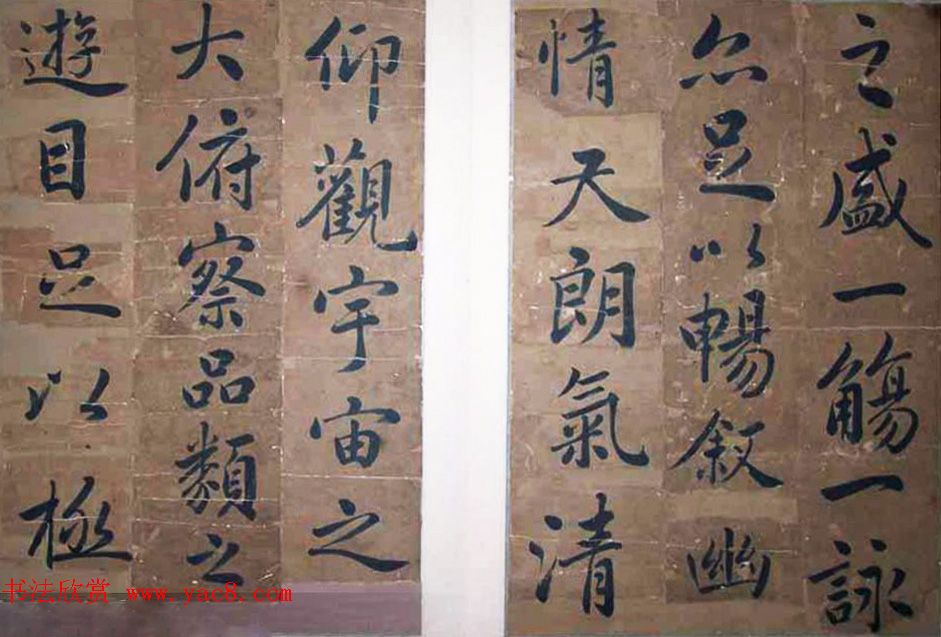 之盛一觴一詠
亦足以暢敘幽
情天朗氣清
仰觀宇宙之
大俯察品類之
遊目足以極
书法欣赏 www.yac8.com